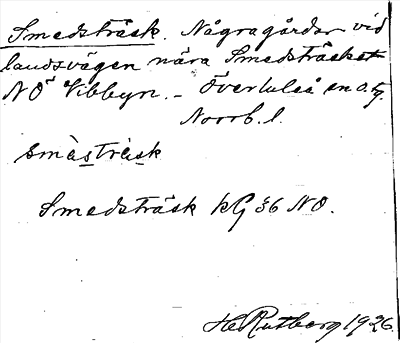 Smedsträsk. Några gårdar vid
landsvägen nära Smedsträsket
NO Vibbyn. - Överluleå sn o. tg.
Norrb. l.
småsträsk
Smedsträsk kG 36 NO.
H Rutberg 1926.